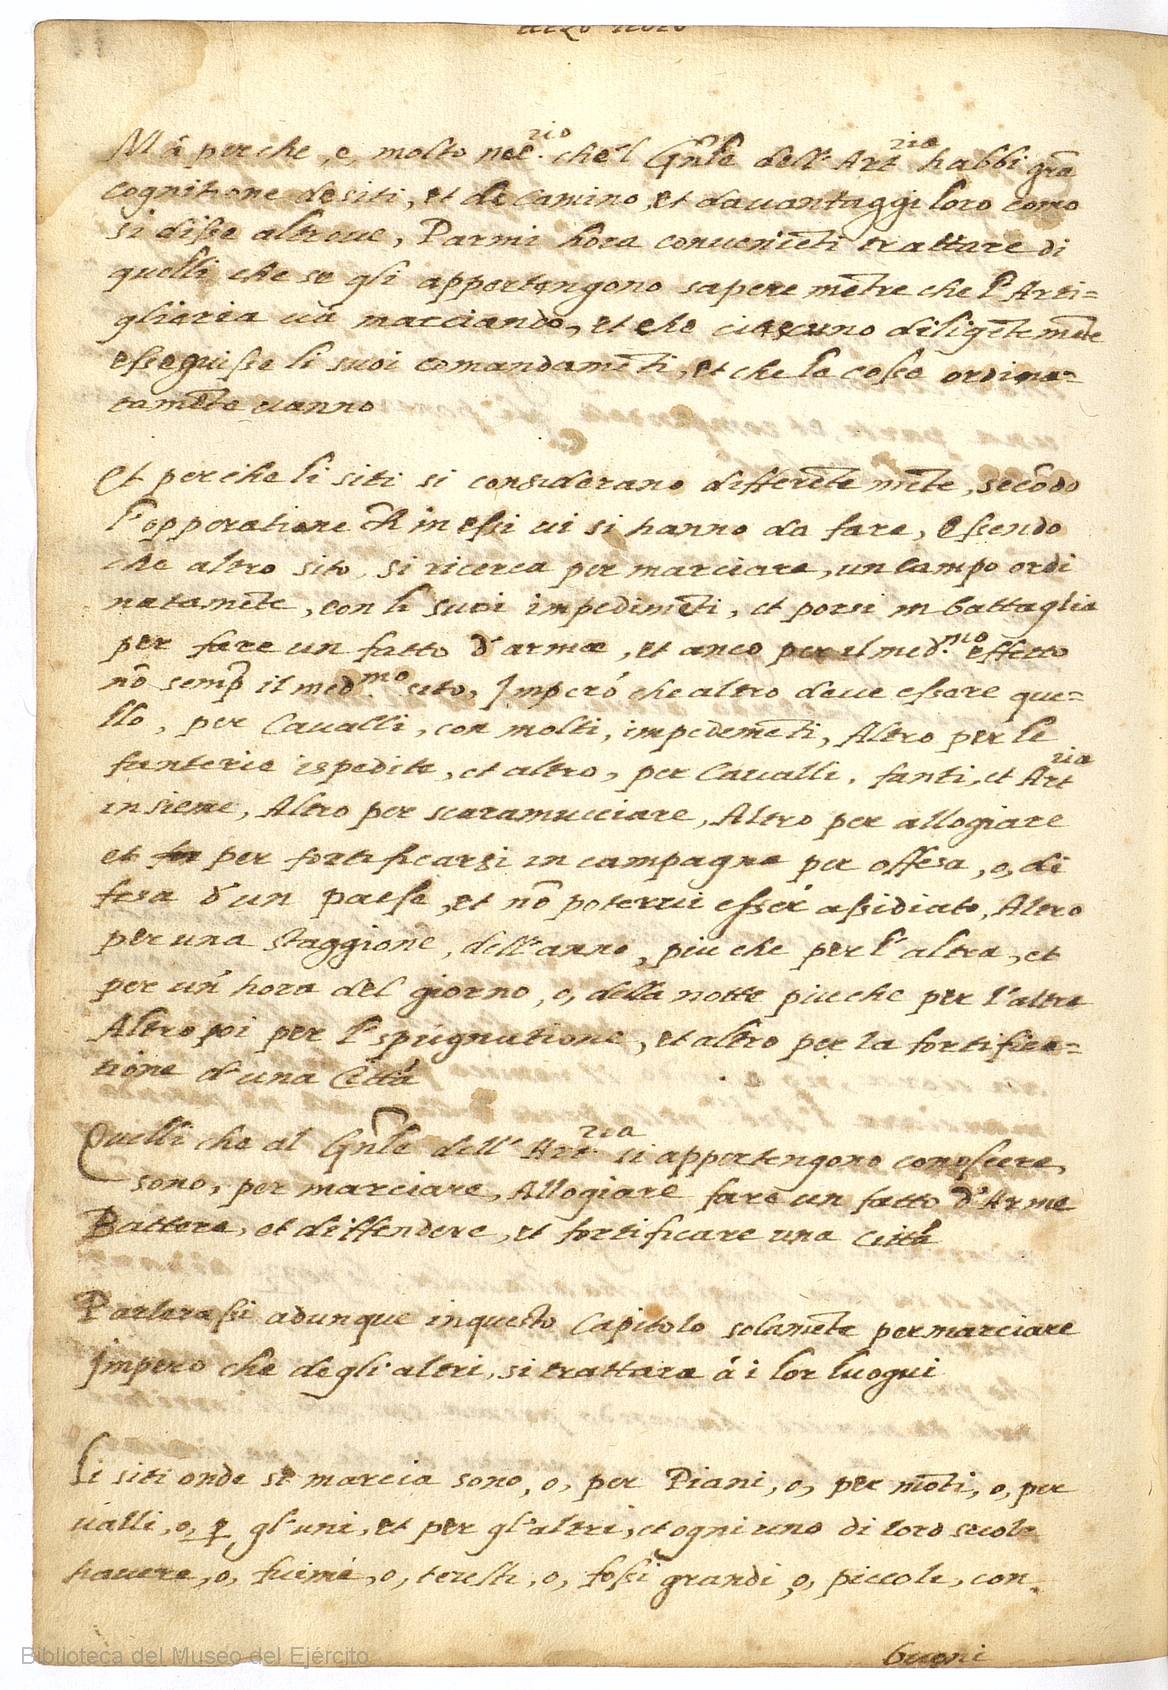 Mà perche, e, molto nec.rio che'l Gn̄le dell' Art.ria habbi grā
cognitione de siti, et di Camino, et d'avantaggi loro como
si disse altroue, Parmi hora convenīeti trattare di
quelli che se gli appertengono sapere mētre che l'Arti=
glieria va marciando, et che ciascuno diligētemēte
esseguisse li suoi comandamēti, et che le cosse ordina=
tamēte vanno
Et perche li siti si considerano differētemēte, secōdo
l'opperatione ch̄ in essi vi si hanno da fare, Essendo
che altro sito, si ricerca per marciare, un Campo ordi
natamēte, con li suoi impedimēti, et porsi in battaglia
per fare un fatto d'arme, et anco per il med.mo effetto
nō semp̄ il med.mo sito, Imperó che altro deve essere que=
llo, per Cavalli, con molti, impedemēti, Altro per le
fanterie ispedite, et altro, per Cavalli, fanti, et Art.ria
insieme, Altro per scaramucciare, Altro per allogiare
et per fortificarsi in campagna per offesa, o, di
fesa d'un paese, et nō potervi esser assidiato, Altro
per una staggione, dell'anno, piu che per l'altra, et
per un' hora del giorno, o, della notte piu che per l'altra
Altro poi per l'espugnatione, et altro per la fortifica=
tione d'una Cittá
Quelli che al Gn̄le dell' Art.ria si appertengono conoscere,
sono, per marciare, Allogiare fare un fatto d'Arme
Battere, et diffendere, et fortificare una Cittá
Parlerassi adunque in questo Capitolo solamēte per marciare
Impero che degli altri, si trattara á i lor luogui
Li siti onde se marcia sono, o, per Piani, o, per mōti, o, per
valli, o, p̱ gl'uni, et per gl'altri, et ogni uno di loro suole
havere, o, fiumi, o, fossi grandi, o, piccoli, con
buoni
Biblioteca del Museo del Ejército